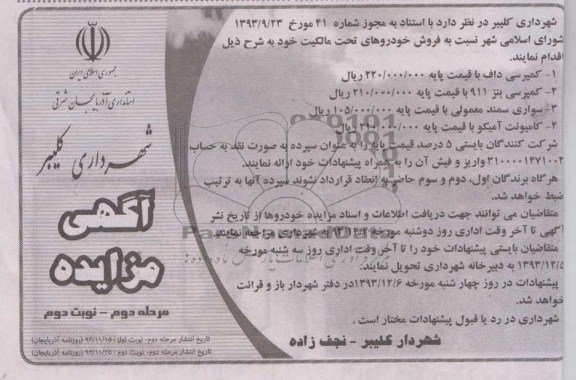 شهرداری کلیبر در نظر دارد با استناد به مجوز شماره ۴۱ مورخ ۱۳۹۳/۹/۲۳
شورای اسلامی شهر نسبت به فروش خودروهای تحت مالکیت خود به شرح ذیل
اقدام نمایند.
۱- کمپرسی داف با قیمت پایه ۲۲۰/۰۰۰/۰۰۰ ریال
۲- کمپرسی بنز ۹۱۱ با قیمت پایه ۲۱۰/۰۰۰/۰۰۰ ریال
۳- سواری سمند معمولی با قیمت پایه ۱۰۵/۰۰۰/۰۰۰ ریال
۴- کامیونت آمیکو با قیمت پایه
شرکت کنندگان بایستی ۵ درصد قیمت پایه را به عنوان سپرده به صورت نقد به حساب
۳۱۰۰۰۰۱۳۷۱۰۰۲ واریز و فیش آن را به همراه پیشنهادات خود ارائه نمایند.
هرگاه برندگان اول، دوم و سوم حاضر به انعقاد قرارداد نشوند سپرده آنها به ترتیب
ضبط خواهد شد.
متقاضیان می توانند جهت دریافت اطلاعات و اسناد مزایده خودروها از تاریخ نشر
آگهی تا آخر وقت اداری روز دوشنبه مورخه به شهرداری مراجعه نمایند.
متقاضیان بایستی پیشنهادات خود را تا آخر وقت اداری روز سه شنبه مورخه
۱۳۹۳/۱۲/۵ به دبیرخانه شهرداری تحویل نمایند.
پیشنهادات در روز چهار شنبه مورخه ۱۳۹۳/۱۲/۶ در دفتر شهردار باز و قرائت
خواهد شد.
شهرداری در رد یا قبول پیشنهادات مختار است.
شهردار کلیبر - نجف زاده
جمهوری اسلامی ایران
استانداری آذربایجان شرقی
شهرداری کلیبر
آگهی
مزایده
مرحله دوم - نوبت دوم
تاریخ انتشار مرحله دوم- نوبت اول: ۹۳/۱۱/۱۵ (روزنامه آذربایجان)
تاریخ انتشار مرحله دوم- نوبت دوم: ۹۳/۱۱/۲۵ (روزنامه آذربایجان)